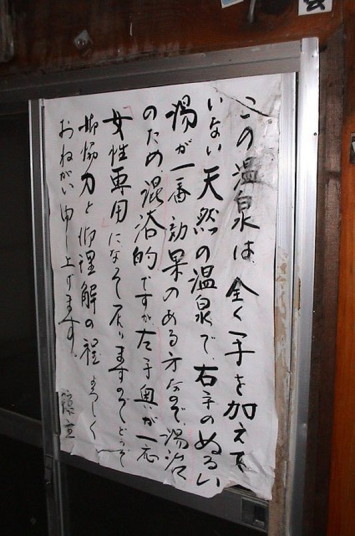 この温泉は、全く手を加えて
いない天然の温泉で、右手のぬるい
湯が一番効果のある方なので、湯治
のため混浴的ですが左手奥が一応
女性専用になって居りますのでどうぞ
御協力と御理解の程よろしく
おねがい申し上げます。